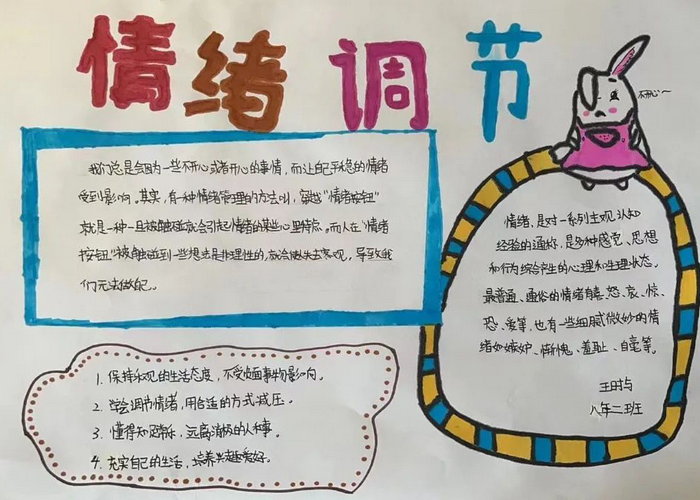 情绪调节
不开心~
我们总是会因为一些不开心或者开心的事情,而让自己平稳的情绪
受到影响。其实,有一种情绪管理的方法叫,穿越“情绪按钮”
就是一种一旦被触碰就会引起情绪的某些心里特点。而人在“情绪
按钮”被触碰到一些想法是非理性的,就会做失去客观,导致我
们无法做自己。
情绪,是对一系列主观认知
经验的通称,是多种感觉、思想
和行为综合产生的心理和生理状态。
最普通、通俗的情绪有喜、怒、哀、惊、
恐、爱等,也有一些细腻微妙的情
绪如嫉妒、惭愧、羞耻、自豪等。
王时与
八年二班
1. 保持乐观的生活态度,不受负面事物影响。
2. 学会调节情绪,用合适的方式减压。
3. 懂得知足常乐,远离消极的人和事。
4. 充实自己的生活,培养兴趣爱好。